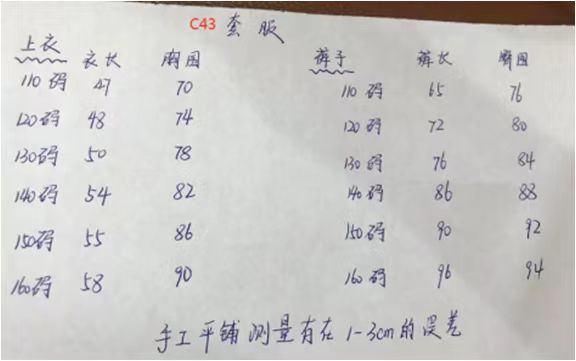 C43 套服
上衣 衣长 胸围 裤子 裤长 臀围
110码 47 70 110码 65 76
120码 48 74 120码 72 80
130码 50 78 130码 76 84
140码 54 82 140码 86 88
150码 55 86 150码 90 92
160码 58 90 160码 96 94
手工平铺测量有在1-3cm的误差